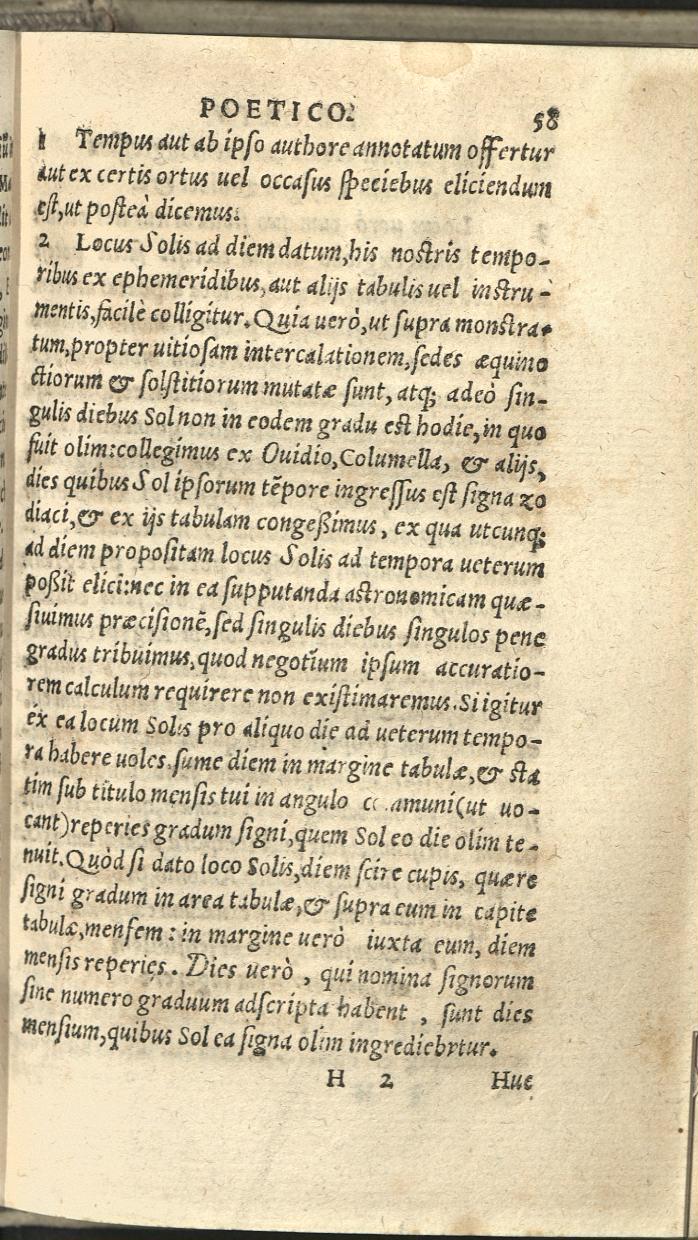 POETICO.
58
1 Tempus aut ab ipso authore annotatum offertur
aut ex certis ortus uel occasus speciebus eliciendum
est, ut posteà dicemus.
2 Locus Solis ad diem datum, his nostris tempo-
ribus ex ephemeridibus, aut alijs tabulis uel instru-
mentis, facilè colligitur. Quia uerò, ut supra monstra-
tum, propter uitiosam intercalationem, sedes æquino
ctiorum & solstitiorum mutatæ sunt, atq; adeò sin-
gulis diebus Sol non in eodem gradu est hodie, in quo
fuit olim: collegimus ex Ouidio, Columella, & alijs,
dies quibus Sol ipsorum tẽpore ingressus est signa zo
diaci, & ex ijs tabulam congeßimus, ex qua utcunq;
ad diem propositam locus Solis ad tempora ueterum
poßit elici: nec in ea supputanda astronomicam quæ-
siuimus præcisionẽ, sed singulis diebus singulos pene
gradus tribuimus, quod negotium ipsum accuratio-
rem calculum requirere non existimaremus. Si igitur
ex ea locum Solis pro aliquo die ad ueterum tempo-
ra habere uoles. sume diem in margine tabulæ, & sta
tim sub titulo mensis tui in angulo amuni (ut uo-
cant) reperies gradum signi, quem Sol eo die olim te-
nuit. Quòd si dato loco Solis, diem scire cupis, quære
signi gradum in area tabulæ, & supra eum in capite
tabulæ, mensem: in margine uerò iuxta eum, diem
mensis reperies. Dies uerò, qui nomina signorum
sine numero graduum adscripta habent, sunt dies
mensium, quibus Sol ea signa olim ingrediebrtur.
H 2 Huc